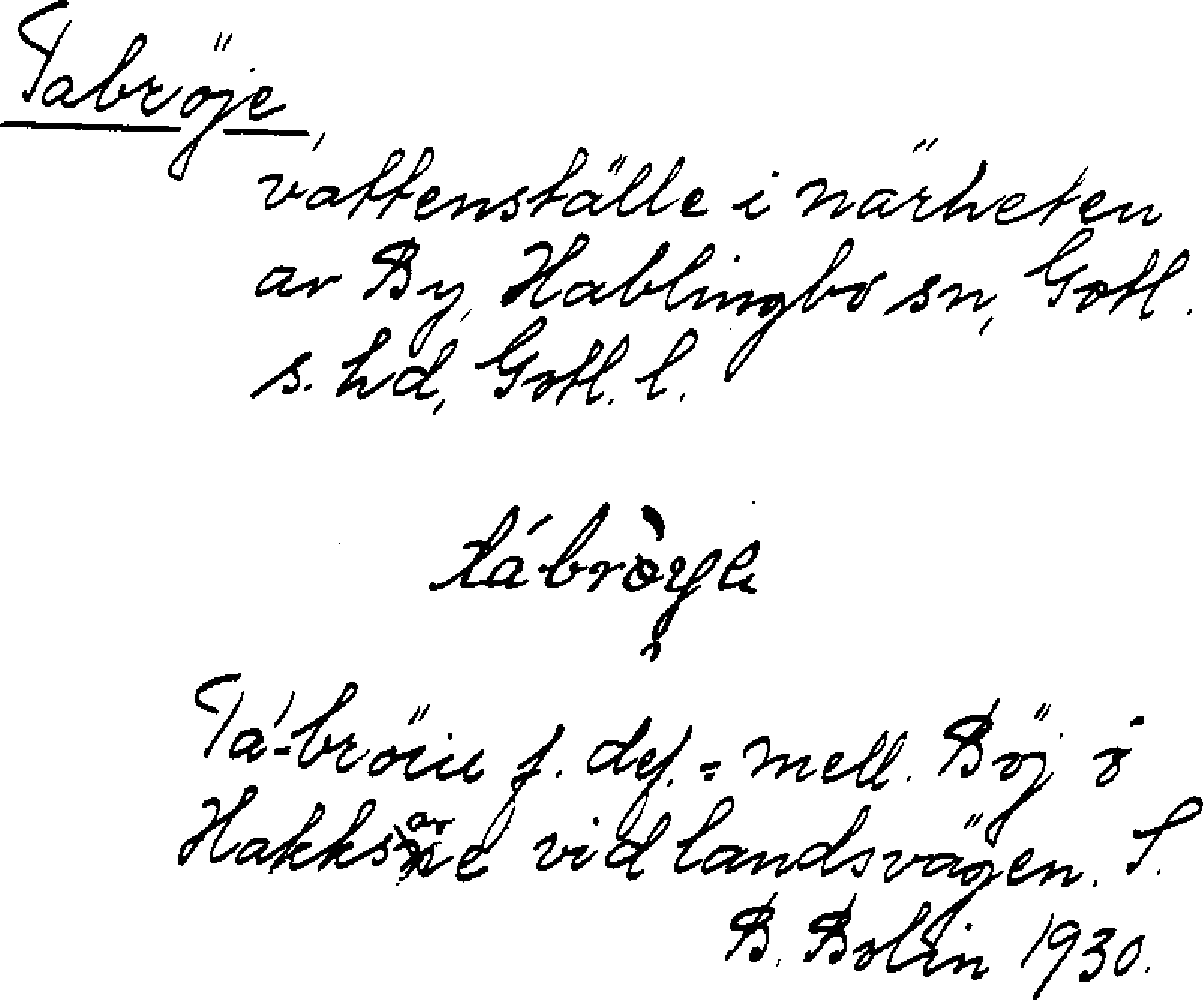 Tabröje,
vattenställe i närheten
av By, Hablingbo sn, Gotl.
s. hd, Gotl. l.
tá-bròye
Tá-bröiu f. def. = mell. Böj å
Hakksarve vid landsvägen. S.
B. Bolin 1930.